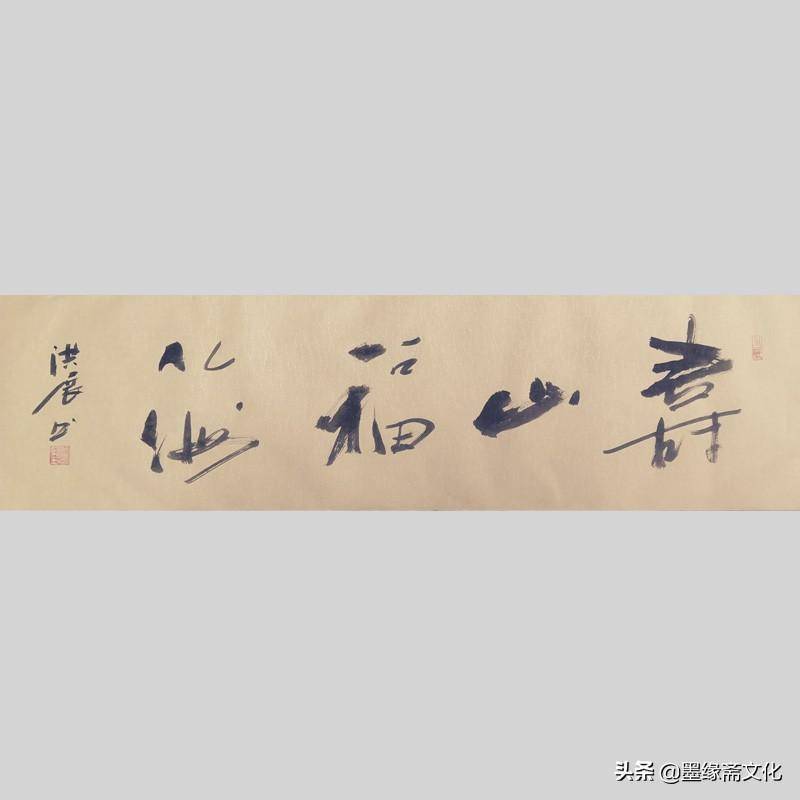 壽山福海
洪展书
头条 @墨缘斋文化